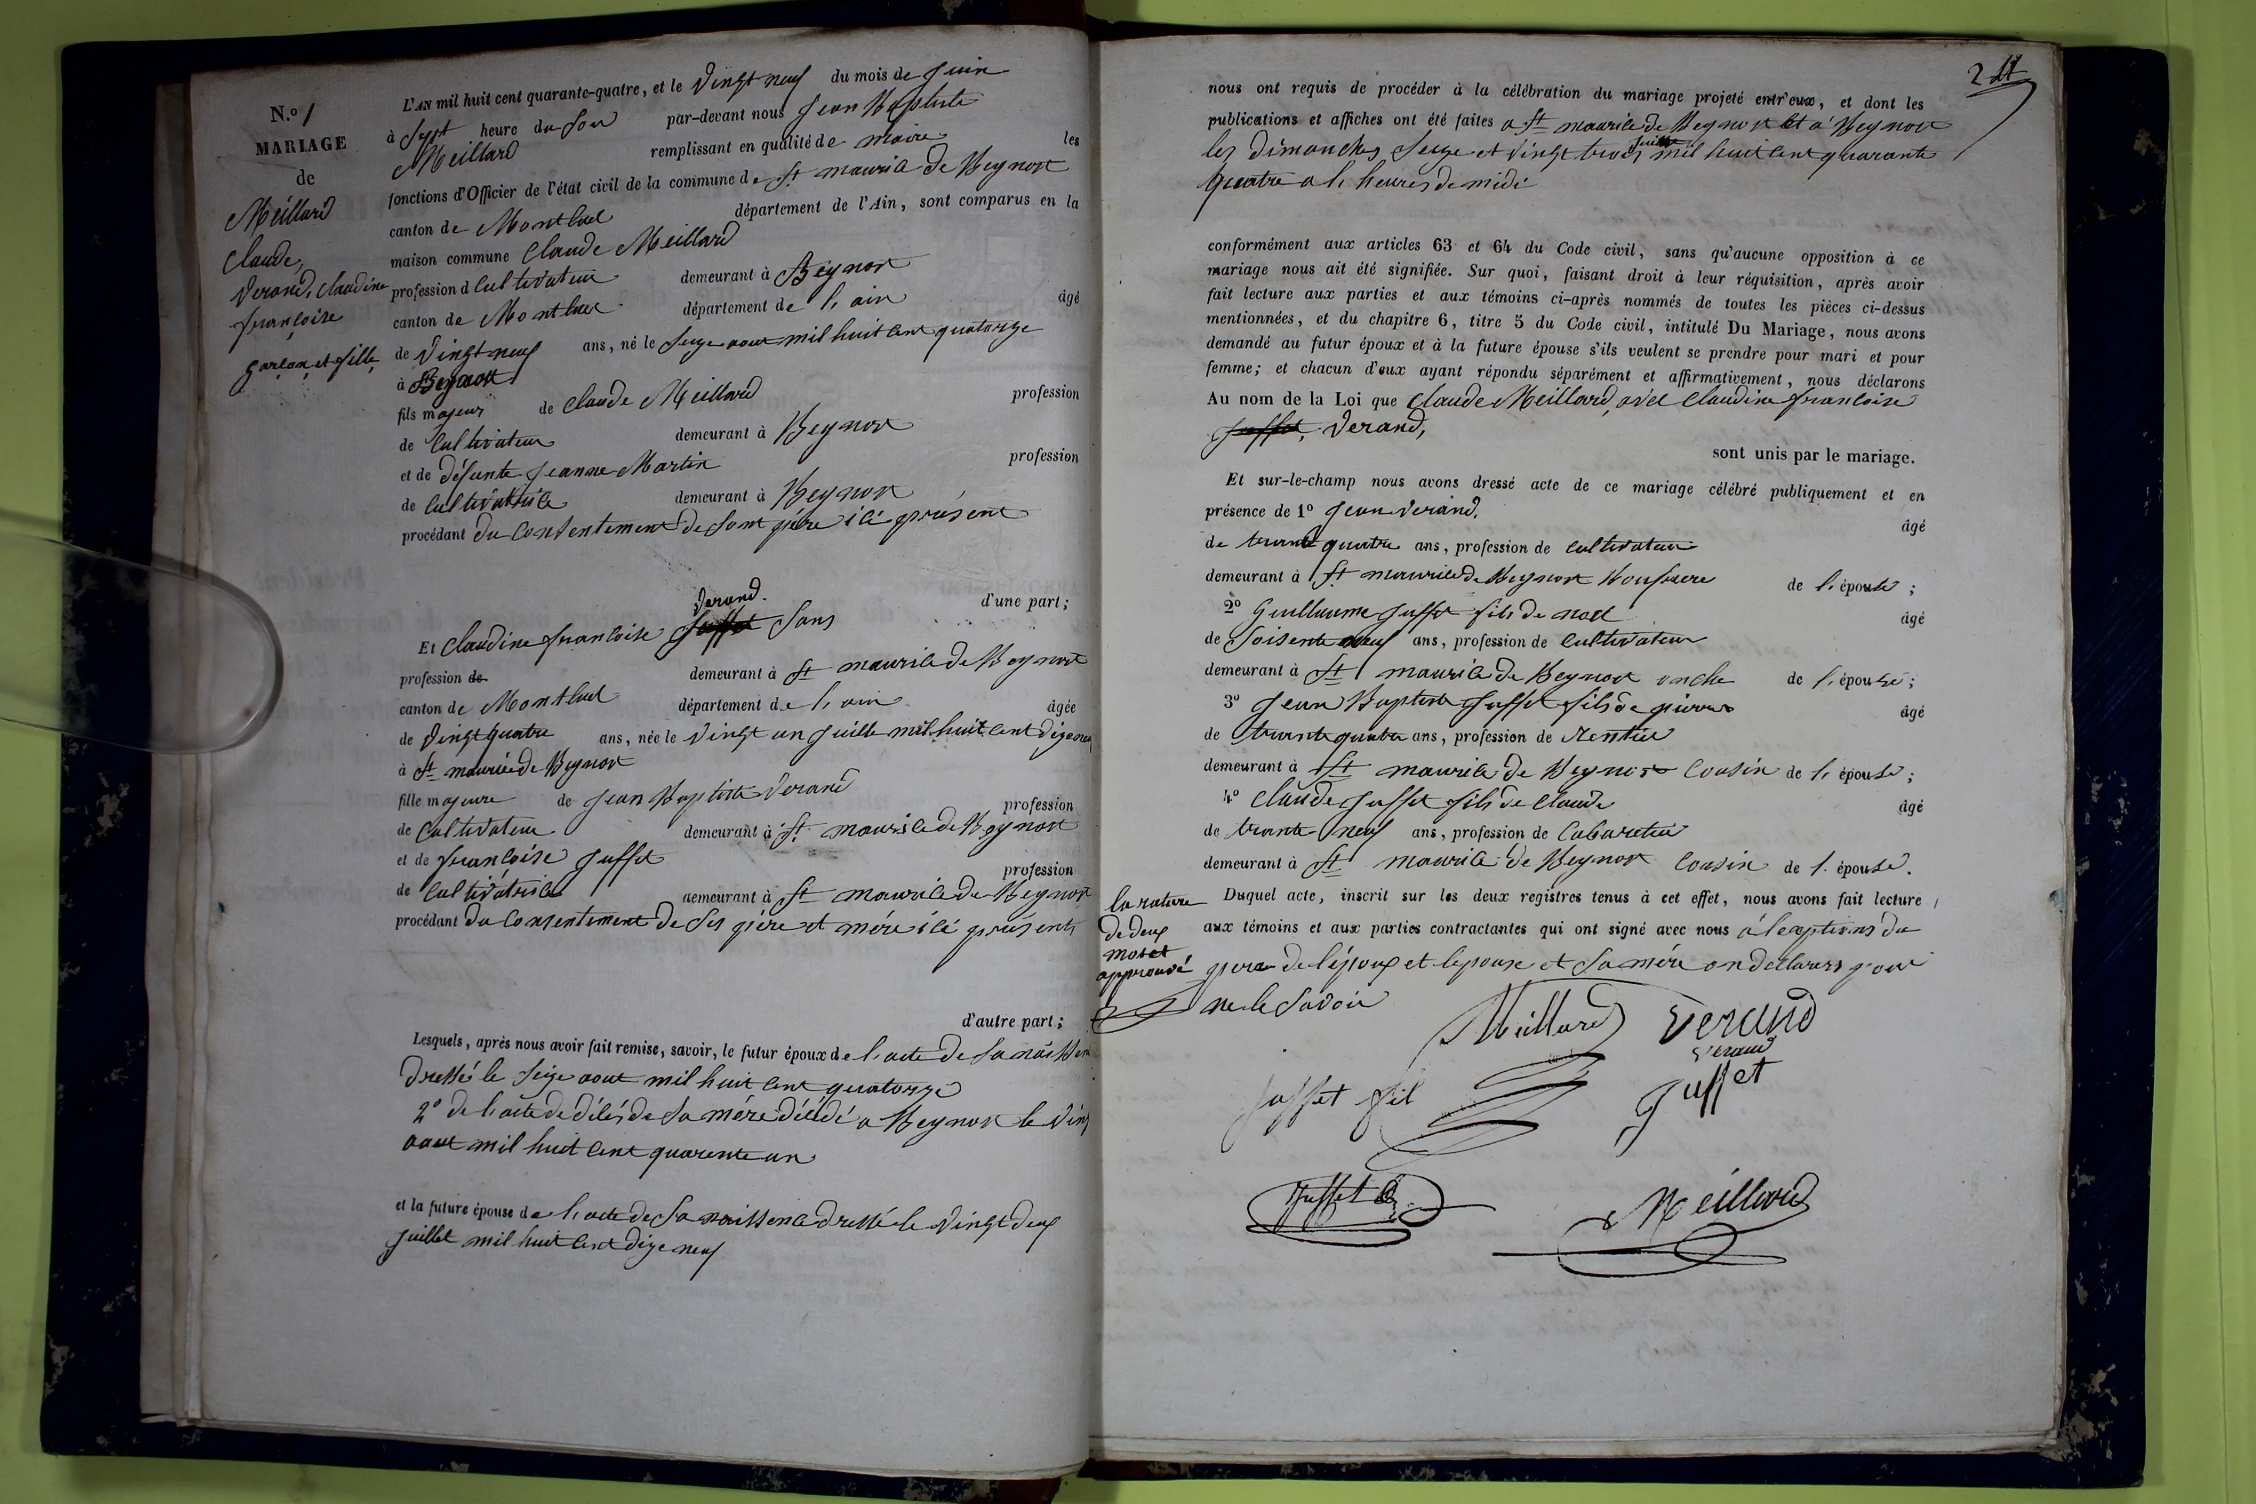 N.º 1
MARIAGE
de
Meillard
Claude,
Verand, Claudine
françoise
garçon et fille
L'AN mil huit cent quarante-quatre, et le vingt neuf du mois de Juin
à Sept heure du Soir par-devant nous Jean Baptiste
Meillard remplissant en qualité de maire les
fonctions d'Officier de l'état civil de la commune de St maurice De Beynost
canton de Montluel département de l'Ain, sont comparus en la
maison commune Claude Meillard
profession d Cultivateur demeurant à Beynost
canton de Montluel département de l'ain âgé
de vingt neuf ans, né le Seize aout mil huit cent quatorze
à Beynost
fils majeur de Claude Meillard profession
de Cultivateur demeurant à Beynost
et de défunte Jeanne Martin profession
de Cultivatrice demeurant à Beynost
procédant du Consentement de Sont père ici présent
d'une part;
Verand.
Et Claudine françoise Juffet Sans
profession de demeurant à St maurice De Beynost
canton de Montluel département de l'ain âgée
de vingt quatre ans, née le vingt un Juille mil huit cent dize neuf
à St maurice de Beynost
fille majeure de Jean Baptiste Verand profession
de Cultivateur demeurant à St maurice de Beynost
et de françoise Juffet profession
de Cultivatrice demeurant à St maurice De Beynost
procédant du Consentement De Ses père et mére ici présents
d'autre part;
Lesquels, après nous avoir fait remise, savoir, le futur époux de l'acte de Sa naissen
Dressé le Seize aout mil huit cent quatorze
2º de l'acte de décés de Sa mére décédé a Beynost le vint
aout mil huit cent quarente un
et la future épouse de l'acte de Sa naissence dressé le vingt deux
Juillet mil huit cent dize neuf
2
nous ont requis de procéder à la célébration du mariage projeté entr'eux, et dont les
publications et affiches ont été faites a St maurice de Beynost et a Beynost
les dimanches Seize et vingt trois Juin mil huit cent quarante
quatre a l'heures de midi
conformément aux articles 63 et 64 du Code civil, sans qu'aucune opposition à ce
mariage nous ait été signifiée. Sur quoi, faisant droit à leur réquisition, après avoir
fait lecture aux parties et aux témoins ci-après nommés de toutes les pièces ci-dessus
mentionnées, et du chapitre 6, titre 5 du Code civil, intitulé Du Mariage, nous avons
demandé au futur époux et à la future épouse s'ils veulent se prendre pour mari et pour
femme; et chacun d'eux ayant répondu séparément et affirmativement, nous déclarons
Au nom de la Loi que Claude Meillard, avec Claudine françoise
Juffet, Verand,
sont unis par le mariage.
Et sur-le-champ nous avons dressé acte de ce mariage célébré publiquement et en
présence de 1º Jean Verand, âgé
de trente quatre ans, profession de Cultivateur
demeurant à St maurice de Beynost de l'épouse;
2º Guillaume Juffet fils de noel âgé
de Soisente neuf ans, profession de Cultivateur
demeurant à St maurice de Beynost oncle de l'épouse;
3º Jean Baptiste Juffet fils de pierre âgé
de trente quatre ans, profession de Rentier
demeurant à St maurice de Beynost Cousin de l'épouse;
4º Claude Juffet fils de Claude âgé
de trente neuf ans, profession de Cabaretier
demeurant à St maurice de Beynost Cousin de l'épouse.
Duquel acte, inscrit sur les deux registres tenus à cet effet, nous avons fait lecture
aux témoins et aux parties contractantes qui ont signé avec nous á l'exptions du
pere de l'époux et l'epouse et Sa mére on declarers pour
ne le Savoir
la rature
De deux
mos et
approuvé
Meillard Verand
Verand
Juffet fil Juffet
Juffet
Meillard